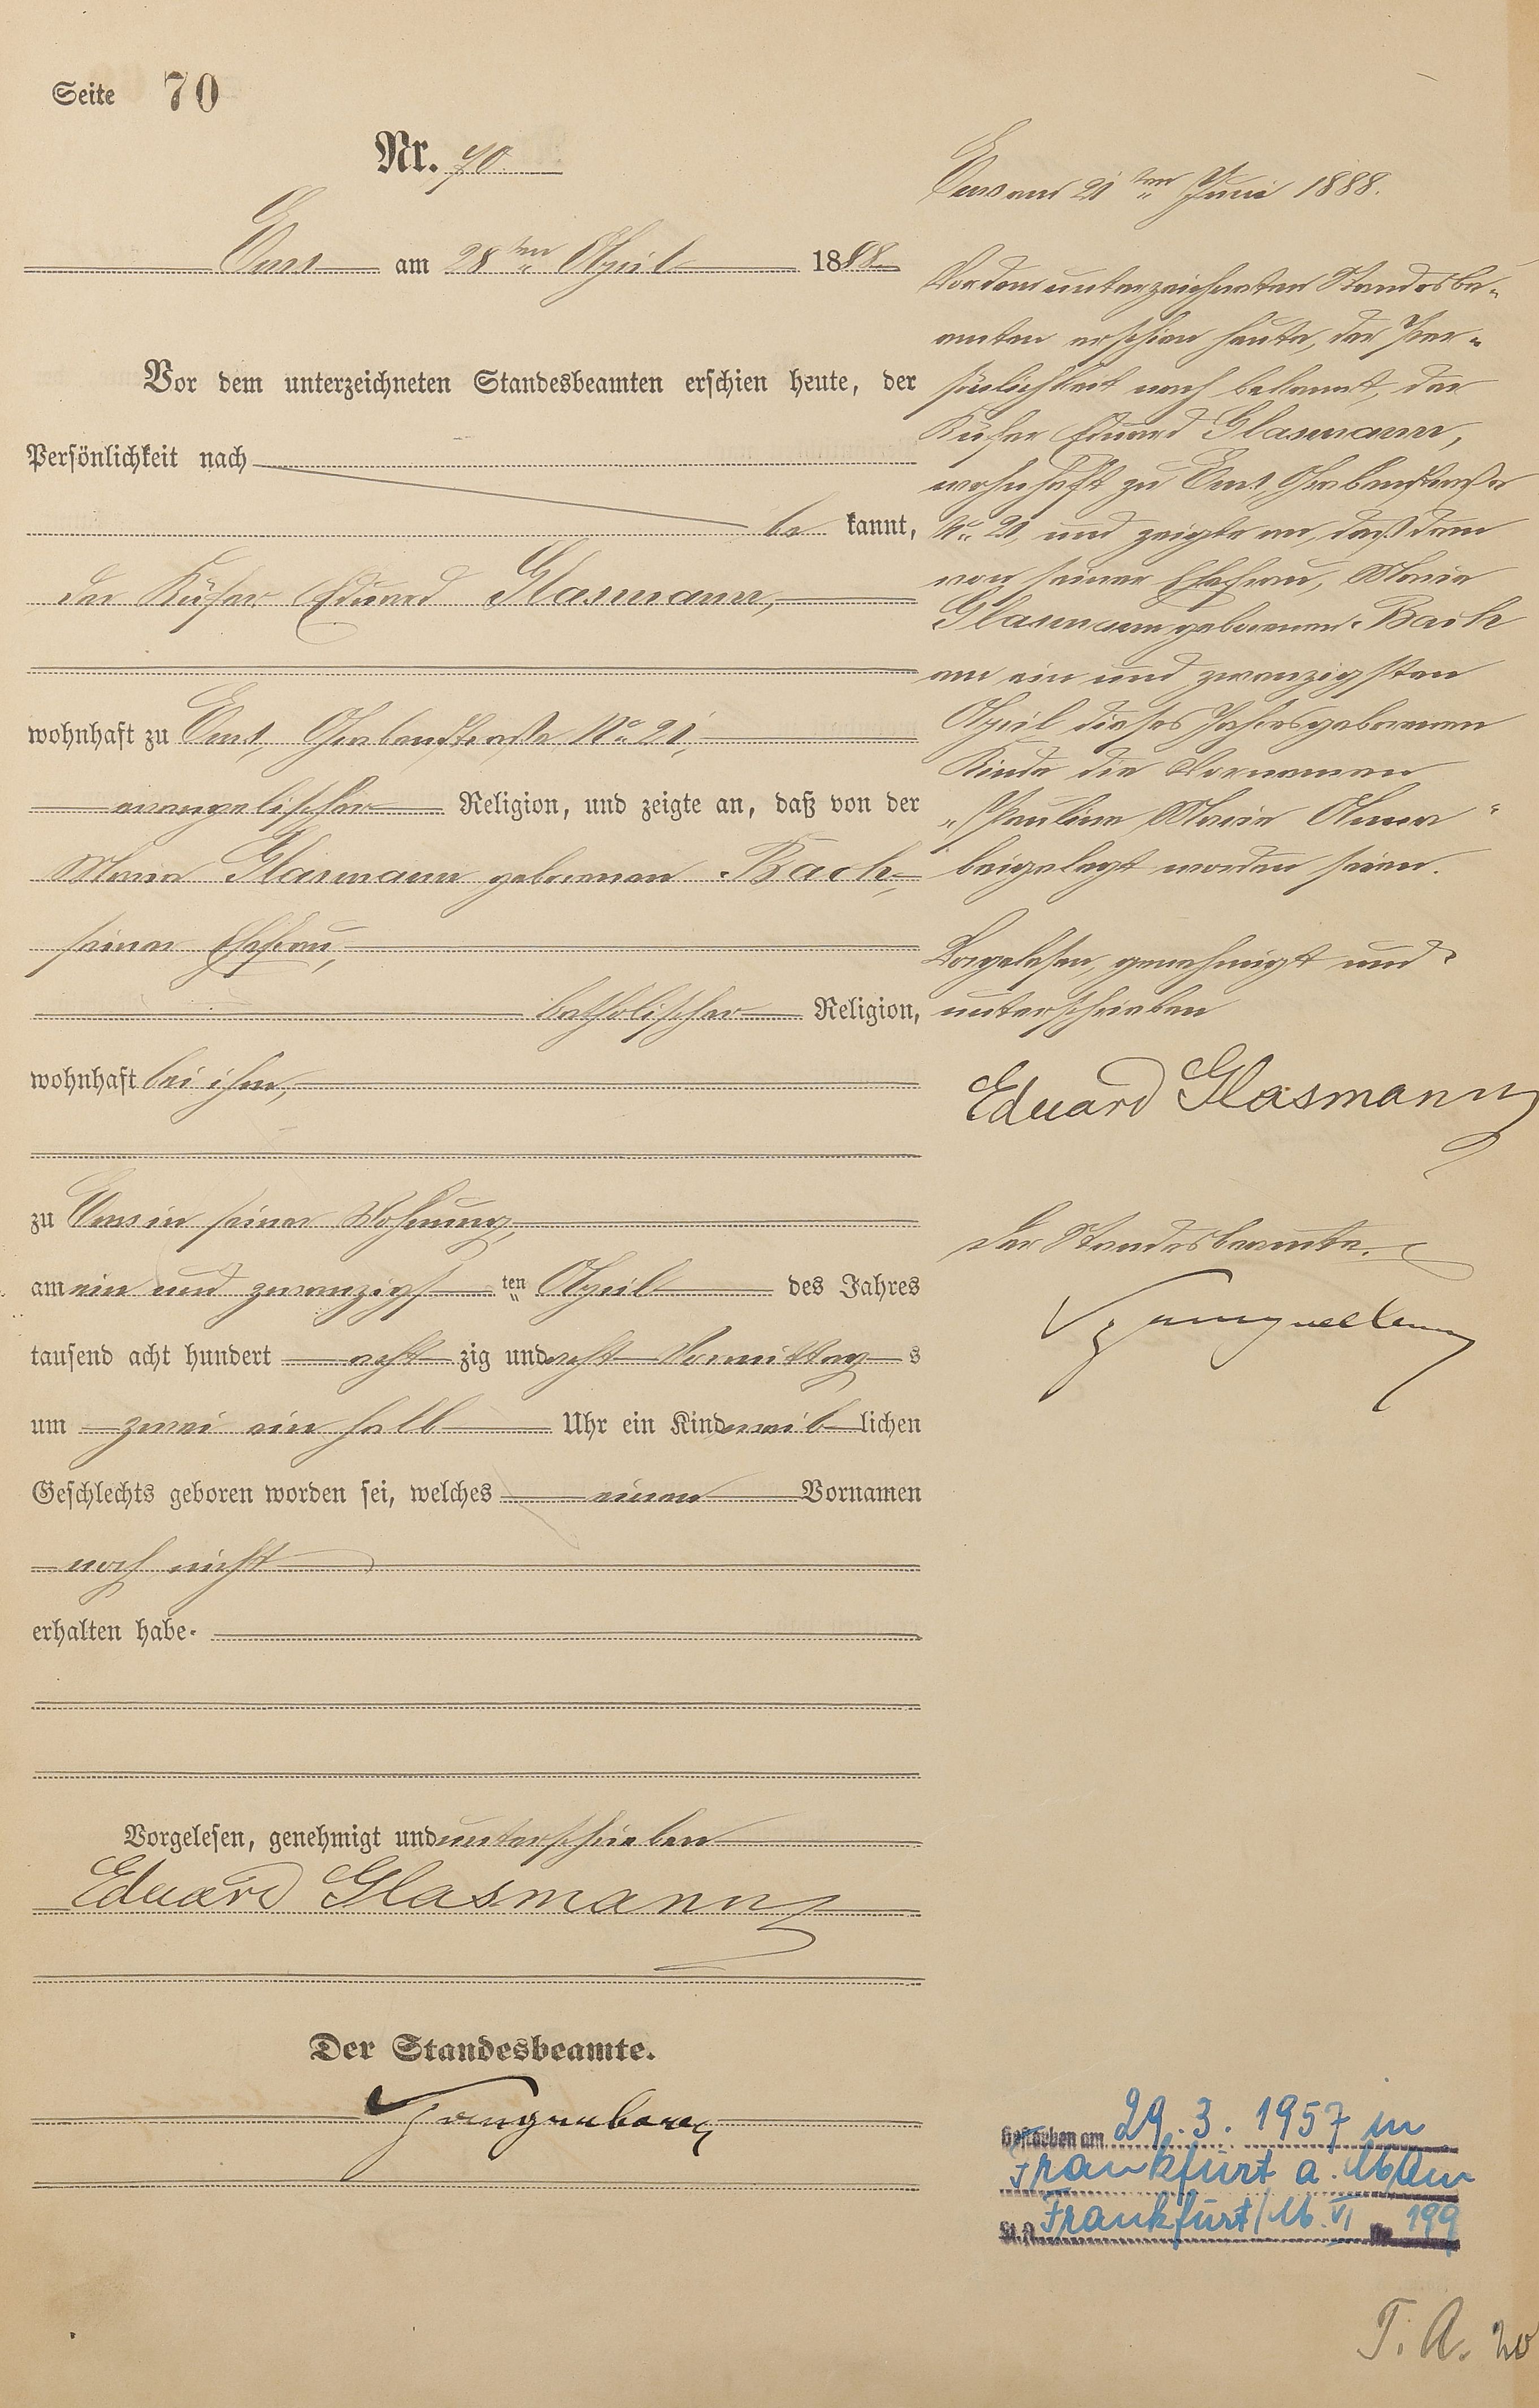 Seite 70
Nr. 70
Ems am 28ten April 1888
Vor dem unterzeichneten Standesbeamten erschien heute, der
Persönlichkeit nach
be kannt,
der Küfer Eduard Glasmann,
wohnhaft zu Ems, Grabenstraße No 21,
evangelischer Religion, und zeigte an, daß von der
Maria Glasmann geborenen Bach,
seiner Ehefrau,
katholischer Religion,
wohnhaft bei ihm,
zu Ems in seiner Wohnung,
am ein und zwanzigsten April des Jahres
tausend acht hundert acht zig und acht Vormittag s
um zwei ein halb Uhr ein Kind weib lichen
Geschlechts geboren worden sei, welches einen Vornamen
noch nicht
erhalten habe.
Vorgelesen, genehmigt und unterschrieben
Eduard Glasmann
Der Standesbeamte.
Ems am 21ten Juni 1888.
Vor dem unterzeichneten Standesbe-
amten erschien heute, der Per-
sönlichkeit nach bekannt, der
Küfer Eduard Glasmann,
wohnhaft zu Ems, Grabenstraße
No 21, und zeigte an, daß dem
von seiner Ehefrau, Maria
Glasmann geborenen Bach
am ein und zwanzigsten
April dieses Jahres geborenen
Kinde die Vornamen
"Pauline Maria Anna"
beigelegt worden seien.
Vorgelesen, genehmigt und
unterschrieben
Eduard Glasmann
Der Standesbeamte.
Gestorben am 29.3.1957 in
Frankfurt a. Main
St.A. Frankfurt/M. VI Nr. 199
T. A. 20